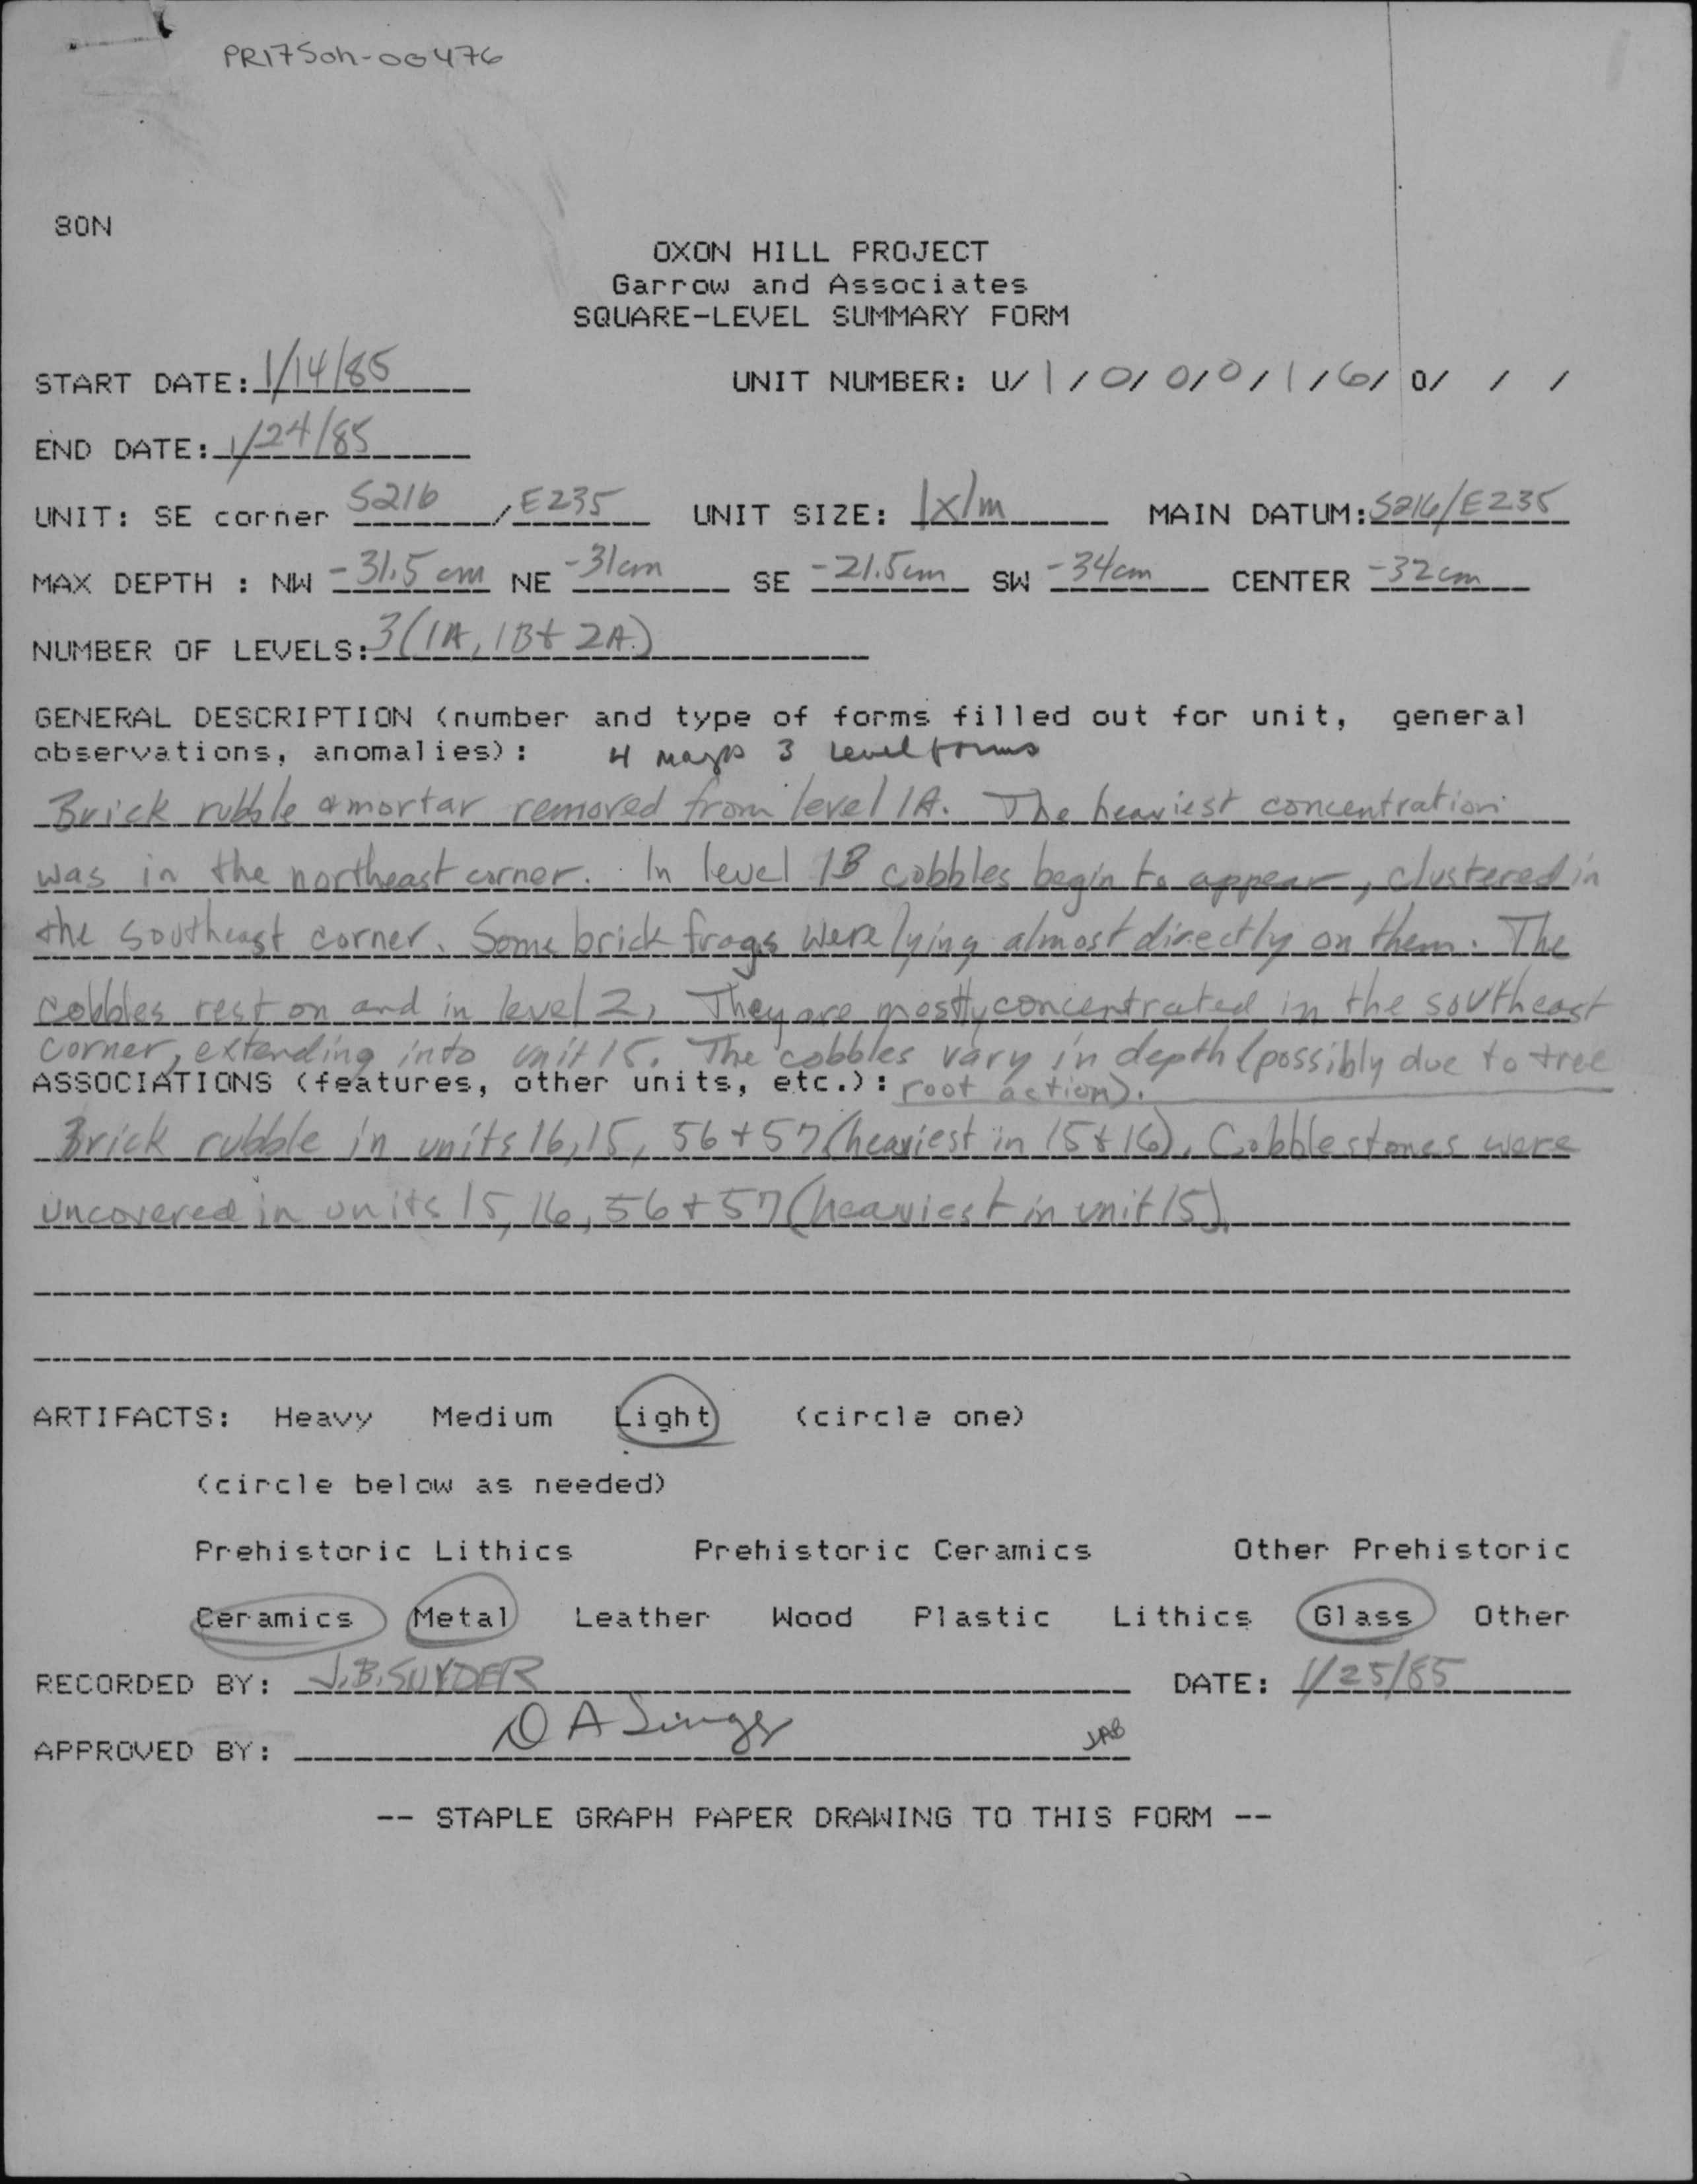 PR175oh-00476
SON
OXON HILL PROJECT
Garrow and Associates
SQUARE-LEVEL SUMMARY FORM
START DATE: 1/14/85 UNIT NUMBER: U/ 1 / 0/ 0/ 0/ 1 / 6/ 0/ / /
END DATE: 1/24/85
UNIT: SE corner S216 / E235 UNIT SIZE: 1x1m MAIN DATUM: S216/E235
MAX DEPTH : NW -31.5 cm NE -31cm SE -21.5cm SW -34cm CENTER -32cm
NUMBER OF LEVELS: 3 (1A, 1B + 2A)
GENERAL DESCRIPTION (number and type of forms filled out for unit, general
observations, anomalies): 4 maps 3 level forms
Brick rubble & mortar removed from level 1A. The heaviest concentration
was in the northeast corner. In level 1B cobbles begin to appear, clustered in
the southeast corner. Some brick frags were lying almost directly on them. The
cobbles rest on and in level 2, They are mostly concentrated in the southeast
corner, extending into unit 15. The cobbles vary in depth (possibly due to tree
ASSOCIATIONS (features, other units, etc.): root action).
Brick rubble in units 16, 15, 56 + 57 (heaviest in 15 + 16). Cobblestones were
uncovered in units 15, 16, 56 + 57 (heaviest in unit 15).
ARTIFACTS: Heavy Medium Light (circle one)
(circle below as needed)
Prehistoric Lithics Prehistoric Ceramics Other Prehistoric
Ceramics Metal Leather Wood Plastic Lithics Glass Other
RECORDED BY: J.B. SNYDER DATE: 1/25/85
APPROVED BY: D A JAB
-- STAPLE GRAPH PAPER DRAWING TO THIS FORM --